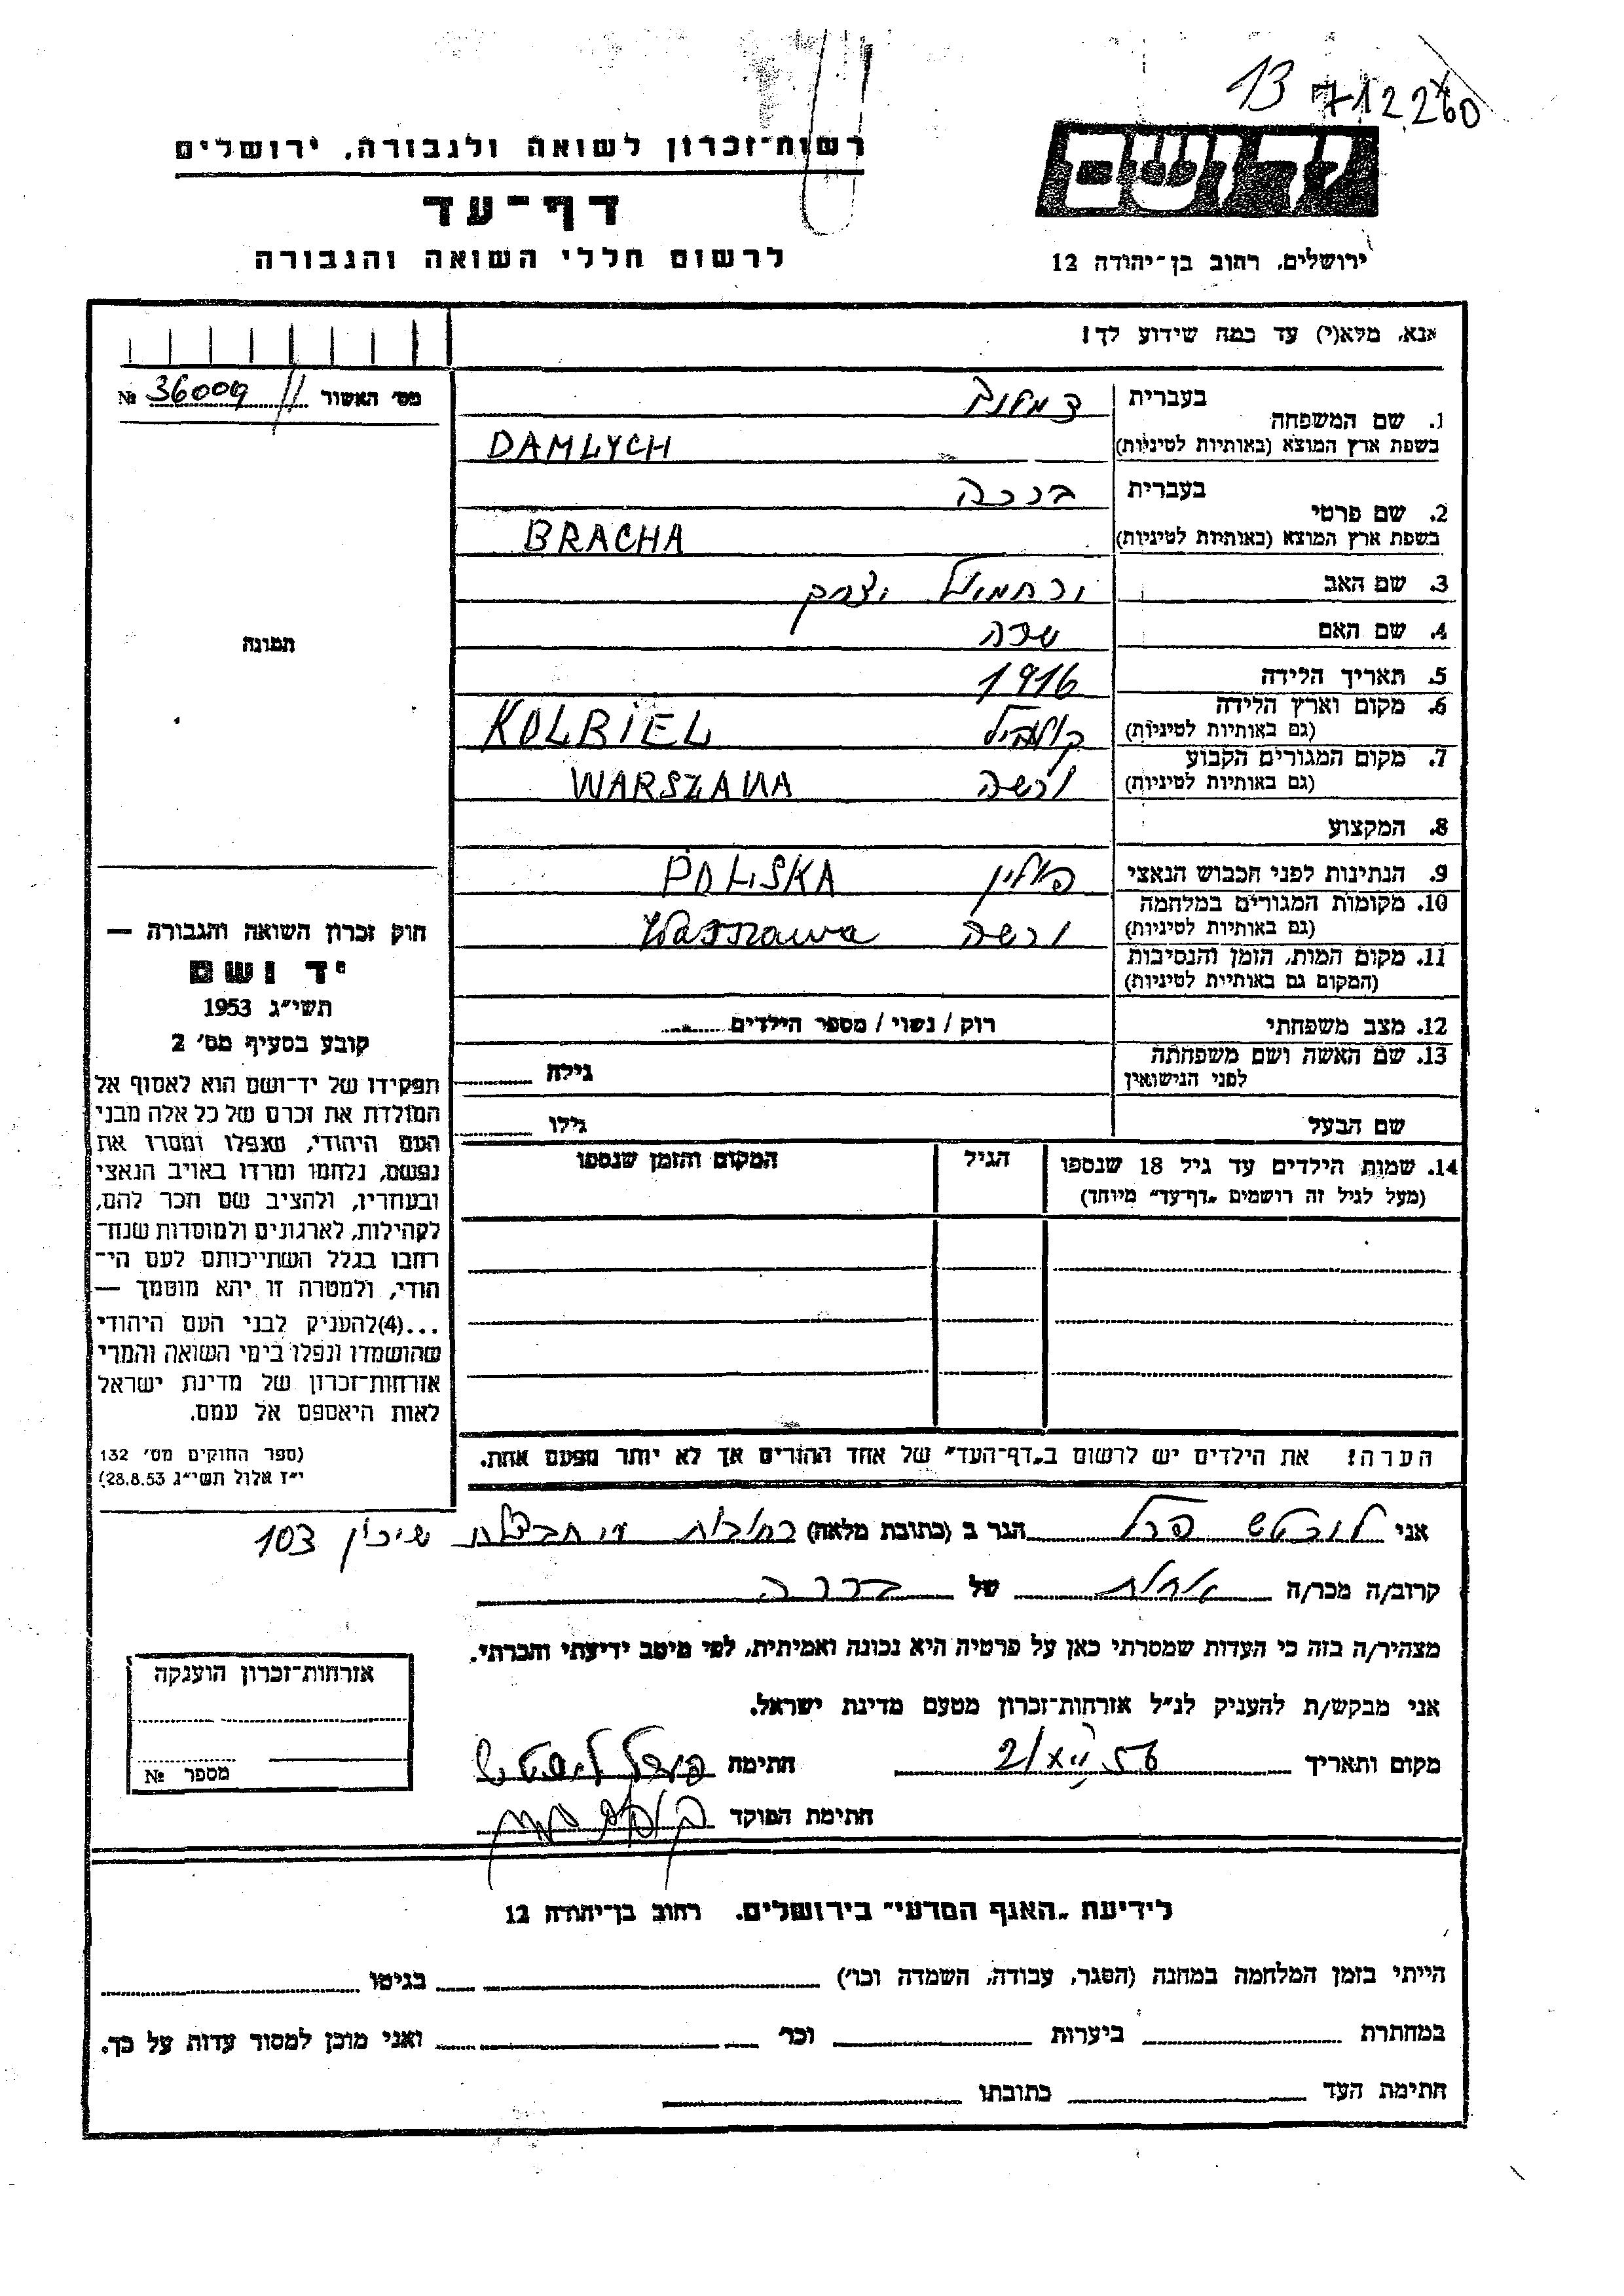 13 712260
רשות-זכרון לשואה ולגבורה, ירושלים
דף-עד
לרשום חללי השואה והגבורה
יד ושם
ירושלים, רחוב בן-יהודה 12
אנא, מלא(י) עד כמה שידוע לך!
מס׳ האשור № 36009
1. שם המשפחה
בעברית
בשפת ארץ המוצא (באותיות לטיניות) DAMLYCH
2. שם פרטי
בעברית ברכה
בשפת ארץ המוצא (באותיות לטיניות) BRACHA
3. שם האב ירחמיאל יצחק
4. שם האם שרה
5. תאריך הלידה 1916
6. מקום וארץ הלידה
(גם באותיות לטיניות) קולביל KOLBIEL
7. מקום המגורים הקבוע
(גם באותיות לטיניות) ורשה WARSZAWA
8. המקצוע
9. הנתינות לפני הכבוש הנאצי פולין POLSKA
10. מקומות המגורים במלחמה
(גם באותיות לטיניות) ורשה Warszawa
11. מקום המות, הזמן והנסיבות
(המקום גם באותיות לטיניות)
12. מצב משפחתי רוק / נשוי / מספר הילדים
13. שם האשה ושם משפחתה
לפני הנישואין גילה
שם הבעל גילו
14. שמות הילדים עד גיל 18 שנספו הגיל המקום והזמן שנספו
(מעל לגיל זה רושמים „דף-עד״ מיוחד)
הערה! את הילדים יש לרשום ב„דף-העד״ של אחד ההורים אך לא יותר מפעם אחת.
תמונה
חוק זכרון השואה והגבורה —
יד ושם
תשי״ג 1953
קובע בסעיף מס׳ 2
תפקידו של יד-ושם הוא לאסוף אל
המולדת את זכרם של כל אלה מבני
העם היהודי, שנפלו ומסרו את
נפשם, נלחמו ומרדו באויב הנאצי
ובעוזריו, ולהציב שם וזכר להם,
לקהילות, לארגונים ולמוסדות שנח-
רבו בגלל השתייכותם לעם הי-
הודי, ולמטרה זו יהא מוסמך —
...(4)להעניק לבני העם היהודי
שהושמדו ונפלו בימי השואה והמרי
אזרחות-זכרון של מדינת ישראל
לאות היאספם אל עמם.
(ספר החוקים מס׳ 132
י״ז אלול תשי״ג 28.8.53)
אני הגר ב (כתובת מלאה) רחובות שיכון 103
קרוב/ה מכר/ה אחות של ברכה
מצהיר/ה בזה כי העדות שמסרתי כאן על פרטיה היא נכונה ואמיתית, לפי מיטב ידיעתי והכרתי.
אני מבקש/ת להעניק לנ״ל אזרחות-זכרון מטעם מדינת ישראל.
מקום ותאריך חתימה
חתימת הפוקד
אזרחות-זכרון הוענקה
מספר №
לידיעת „האגף המדעי״ בירושלים, רחוב בן-יהודה 12
הייתי בזמן המלחמה במחנה (הסגר, עבודה, השמדה וכו׳) בגיטו
במחתרת ביערות וכו׳ ואני מוכן למסור עדות על כך.
חתימת העד כתובתו